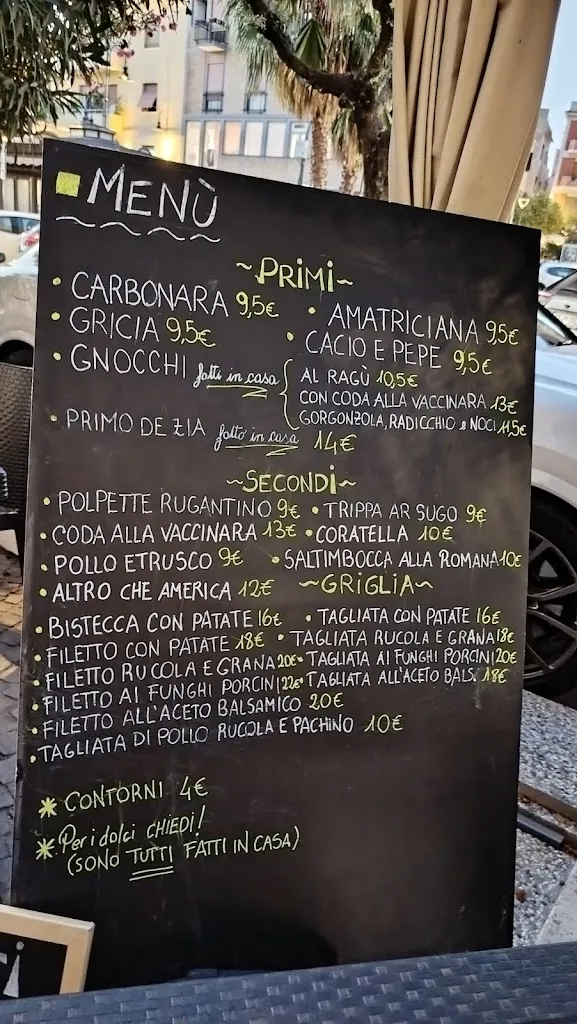 MENÙ
~PRIMI~
• CARBONARA 9,5€ • AMATRICIANA 9,5€
• GRICIA 9,5€ • CACIO E PEPE 9,5€
• GNOCCHI fatti in casa { AL RAGÙ 10,5€
CON CODA ALLA VACCINARA 13€
GORGONZOLA, RADICCHIO e NOCI 11,5€
• PRIMO DE ZIA fatto in casa 14€
~SECONDI~
• POLPETTE RUGANTINO 9€ • TRIPPA AR SUGO 9€
• CODA ALLA VACCINARA 13€ • CORATELLA 10€
• POLLO ETRUSCO 9€ • SALTIMBOCCA ALLA ROMANA 10€
• ALTRO CHE AMERICA 12€
~GRIGLIA~
• BISTECCA CON PATATE 16€ • TAGLIATA CON PATATE 16€
• FILETTO CON PATATE 18€ • TAGLIATA RUCOLA E GRANA 18€
• FILETTO RUCOLA E GRANA 20€ • TAGLIATA AI FUNGHI PORCINI 20€
• FILETTO AI FUNGHI PORCINI 22€ • TAGLIATA ALL'ACETO BALS. 18€
• FILETTO ALL'ACETO BALSAMICO 20€
• TAGLIATA DI POLLO RUCOLA E PACHINO 10€
* CONTORNI 4€
* Per i dolci CHIEDI!
(SONO TUTTI FATTI IN CASA)